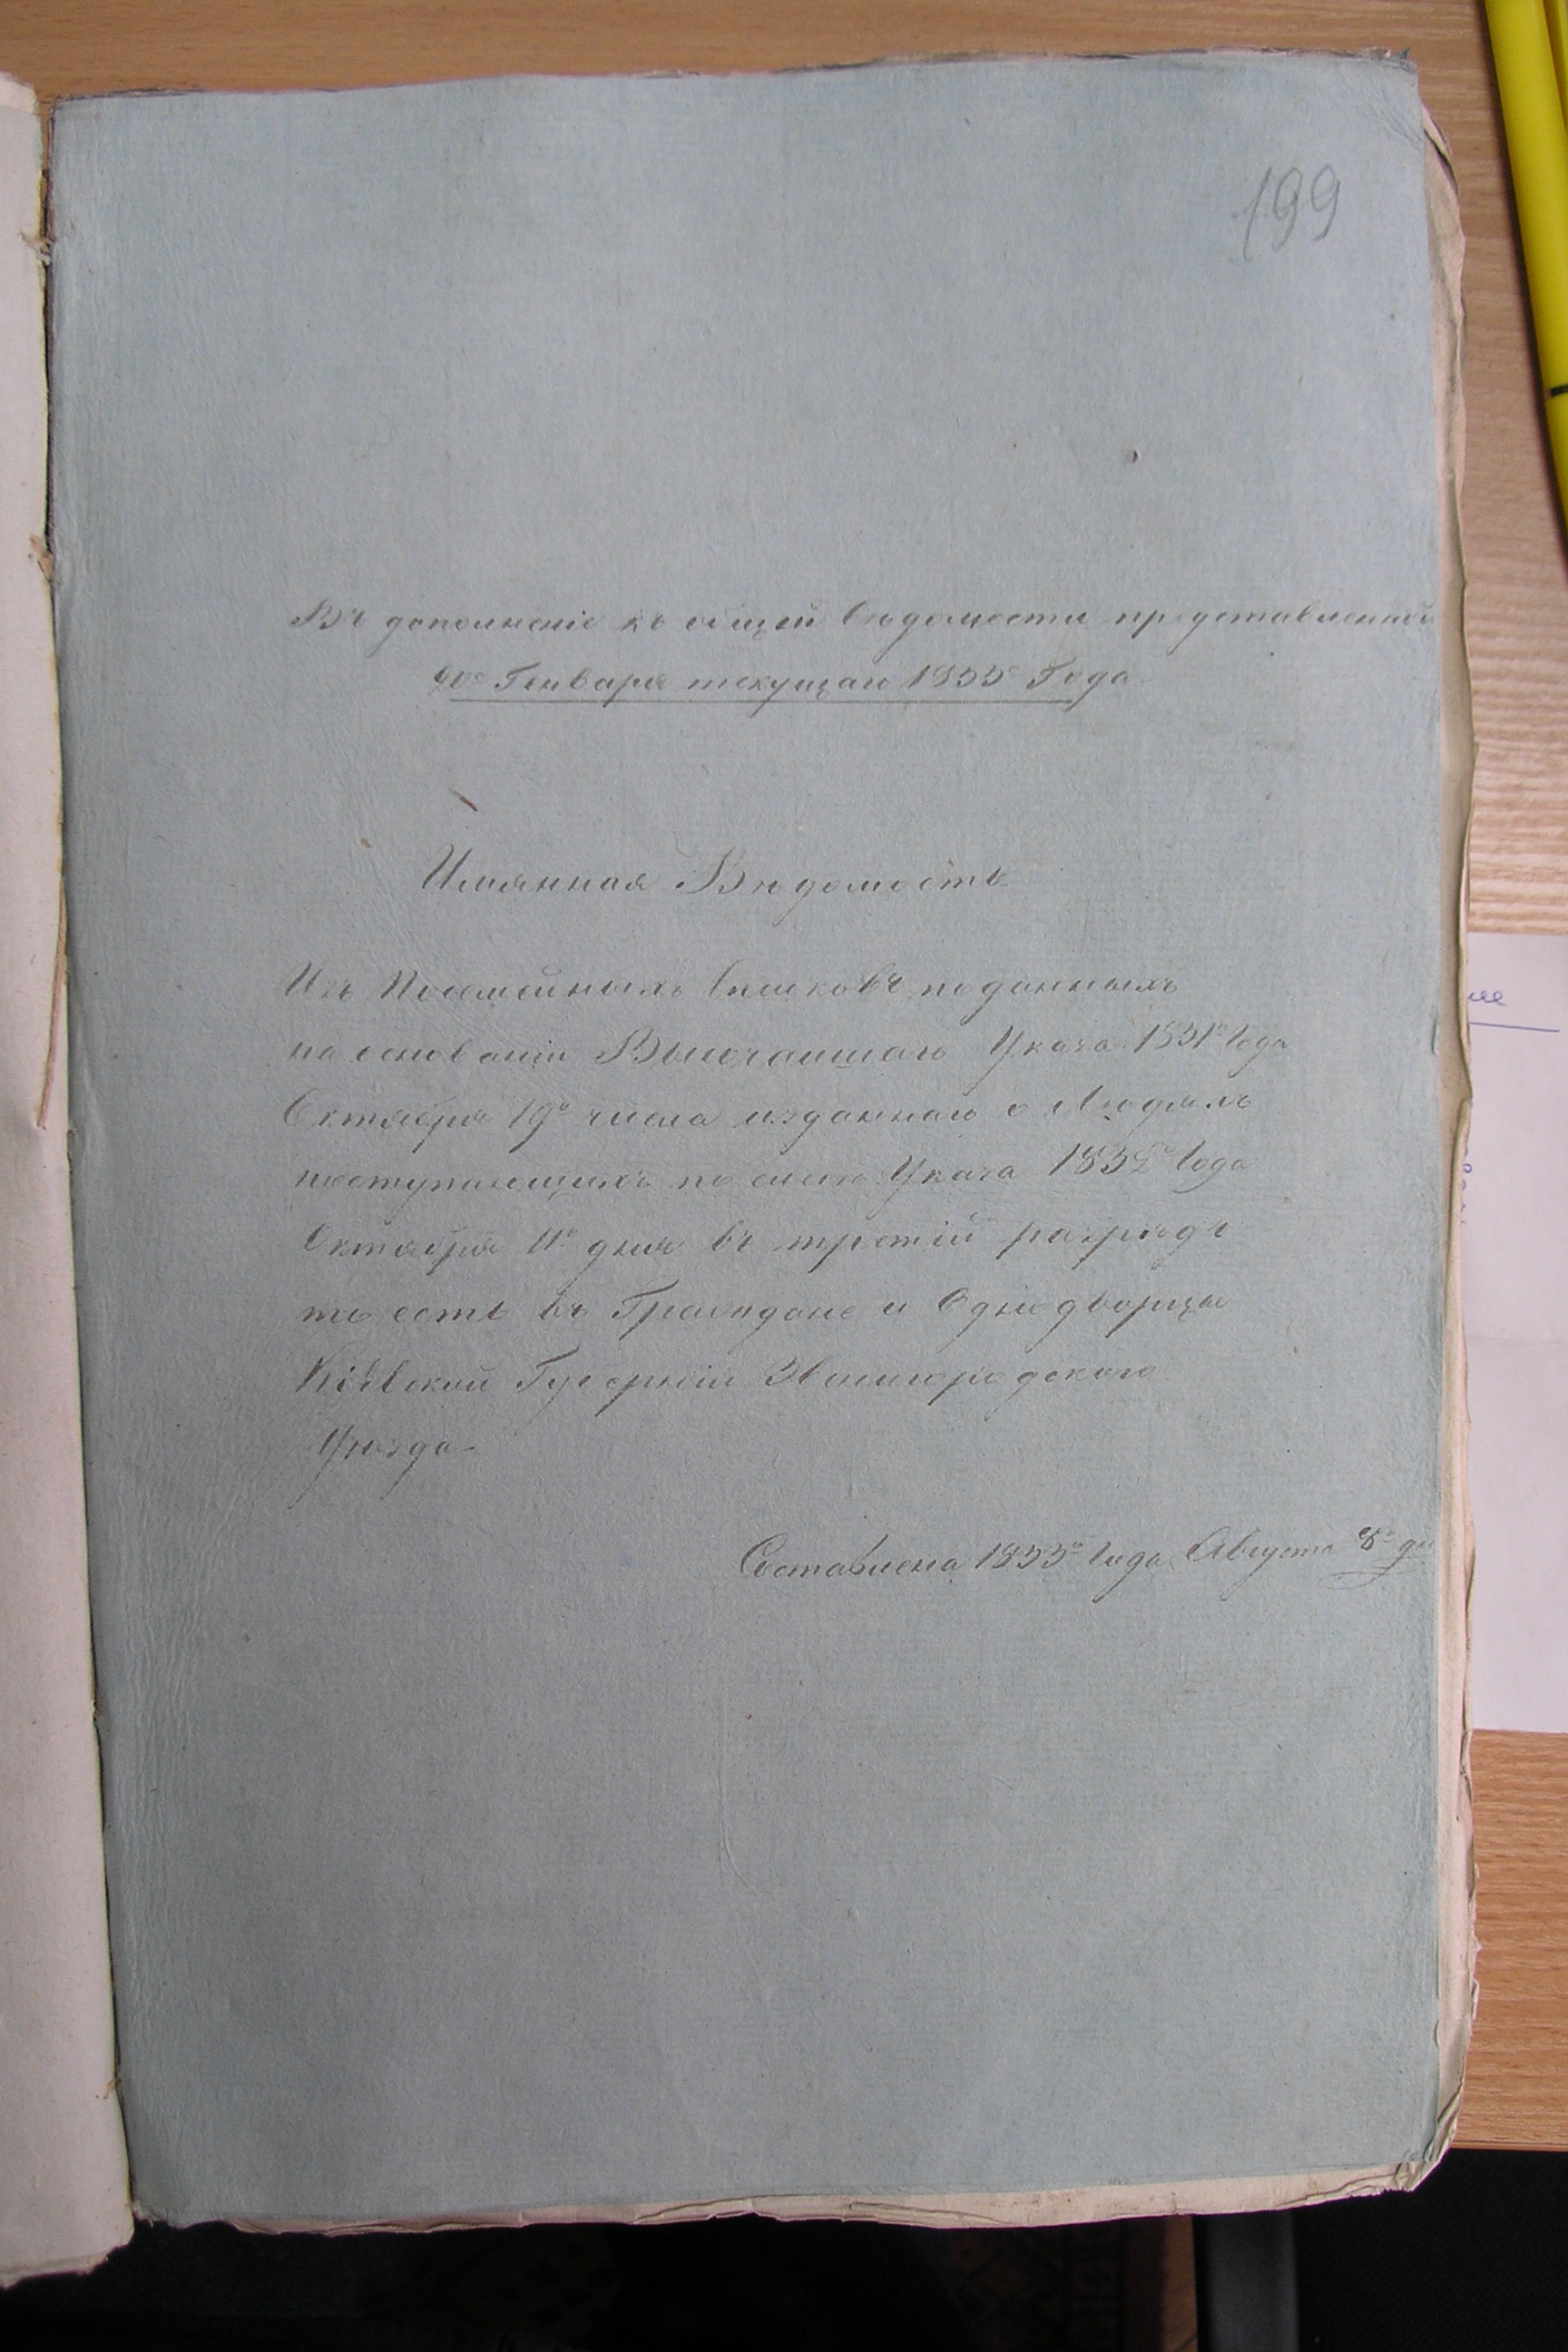 199
Въ дополненіе къ общей вѣдомости представленной
Генваря текущаго 1833го Года
Имянная Вѣдомость
Изъ Посемейныхъ Списковъ поданныхъ
на основаніи Высочаишаго Указа 1831го Года
Октября 19го числа изданнаго о Людяхъ
поступающихъ по силѣ Указа 1832го Года
Октября 11го дня въ третій разрядъ
то есть въ Граждане и Однодворцы
Кіевской Губерніи Звенигородского
Уѣзда
Составлена 1833го Года Августа 8го дн